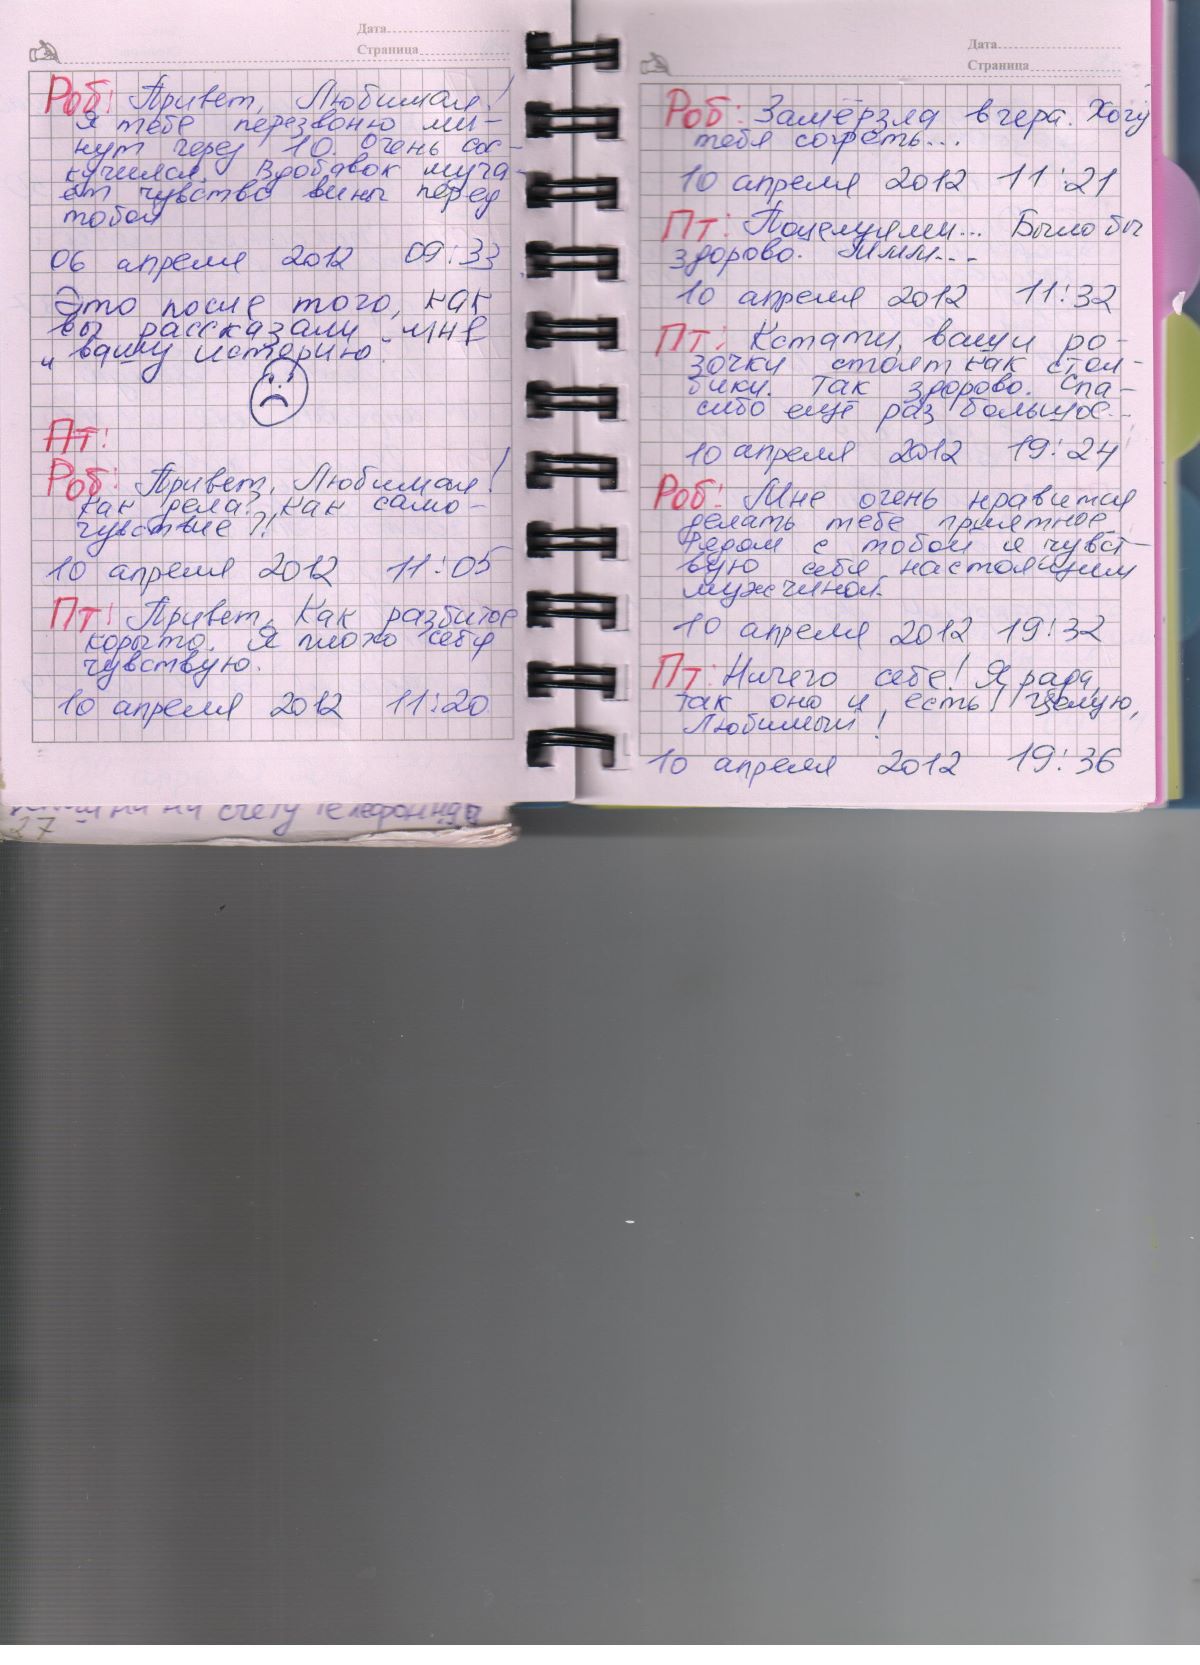 Дата
Страница
Роб: Привет, Любимая!
Я тебе перезвоню ми-
нут через 10. Очень сос-
кучился. Вдобавок муча-
ет чувство вины перед
тобой
06 апреля 2012 09:33
Это после того, как
вы рассказали мне
"вашу историю"
Пт:
Роб: Привет, Любимая!
Как дела? Как само-
чувствие?!
10 апреля 2012 11:05
Пт: Привет, Как разбитое
корыто. Я плохо себя
чувствую.
10 апреля 2012 11:20
счету телефонида
27
Дата
Страница
Роб: Замёрзла вчера. Хочу
тебя согреть...
10 апреля 2012 11:21
Пт: Поцелуями... Было бы
здорово. Ммм...
10 апреля 2012 11:32
Пт: Кстати, ваши ро-
зочки стоят как стол-
бики. Так здорово. Спа-
сибо ещё раз большое...
10 апреля 2012 19:24
Роб: Мне очень нравится
делать тебе приятное.
Рядом с тобой я чувст-
вую себя настоящим
мужчиной.
10 апреля 2012 19:32
Пт: Ничего себе! Я рада,
так оно и есть! Целую,
Любимый!
10 апреля 2012 19:36